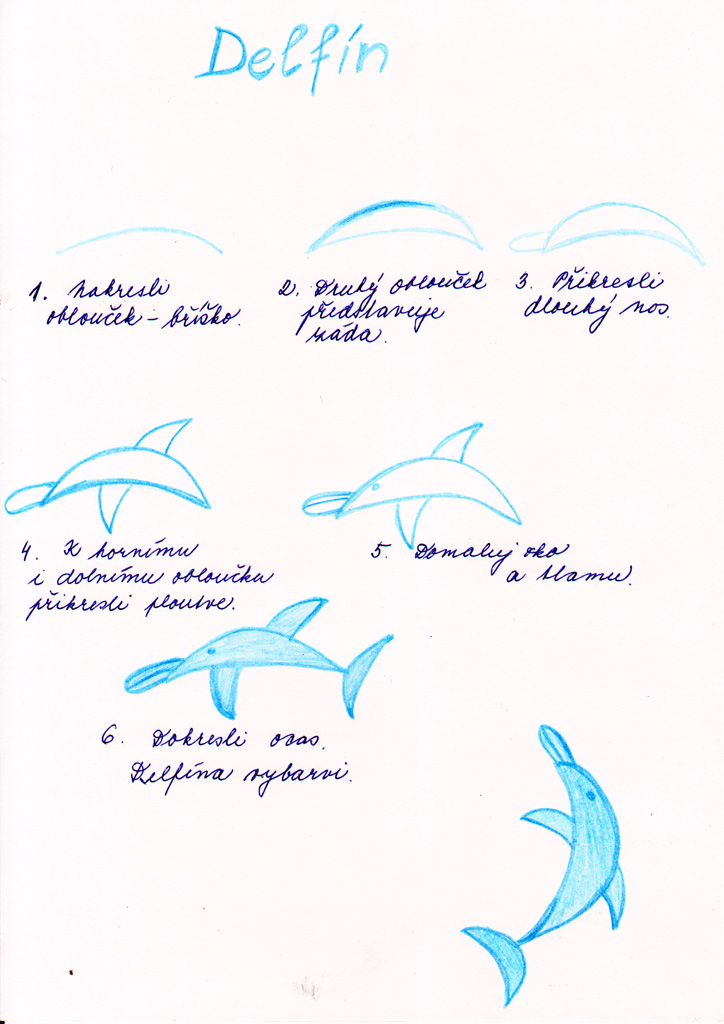 Delfín
1. Nakresli
oblouček – bříško.
2. Druhý oblouček
představuje
záda.
3. Přikresli
dlouhý nos.
4. K hornímu
i dolnímu obloučku
přikresli ploutve.
5. Domaluj oko
a tlamu.
6. Dokresli ocas.
Delfína vybarvi.